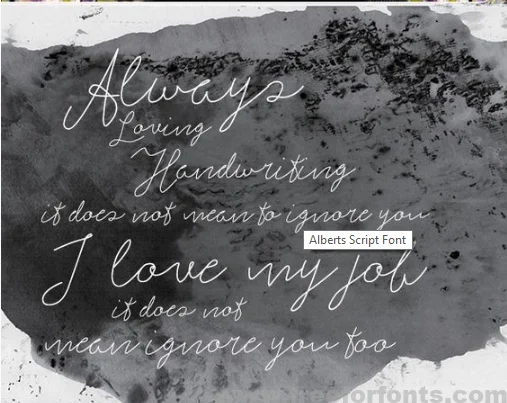 Always
Loving
Handwriting
it does not mean to ignore you
Alberts Script Font
I love my job
it does not
mean ignore you too